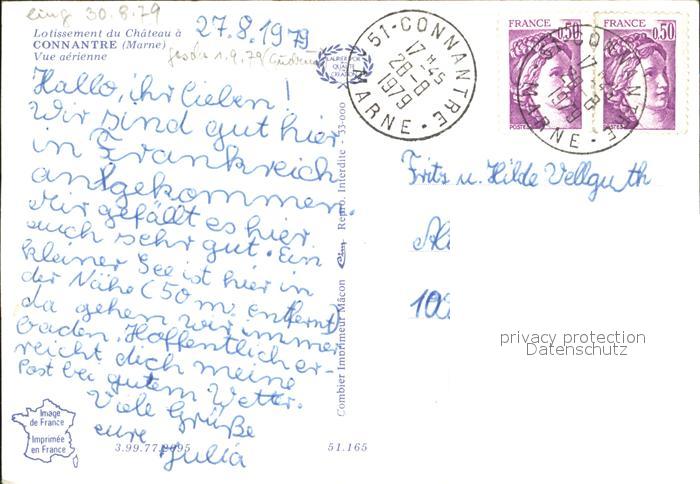 eing 30.8.79
27.8.1979
Lotissement du Château à
CONNANTRE (Marne)
Vue aérienne
1.9.79
Hallo, ihr lieben!
Wir sind gut hier
in Frankreich
angekommen.
Mir gefällt es hier
auch sehr gut. Ein
kleiner See ist hier in
der Nähe (50 m entfernt)
da gehen wir immer
baden. Hoffentlich er-
reicht dich meine
Post bei gutem Wetter.
Viele Grüße
eure
Julia
Image
de France
Imprimée
en France
3.99.77.0095
51.165
Combier Imprimeur Mâcon
Cim
Repro. Interdite - 33-000
51-CONNANTRE
17 H 45
28-8
1979
MARNE
FRANCE 0,50
POSTES
FRANCE 0,50
POSTES
Fritz u. Hilde Vellguth
Al
102
privacy protection
Datenschutz